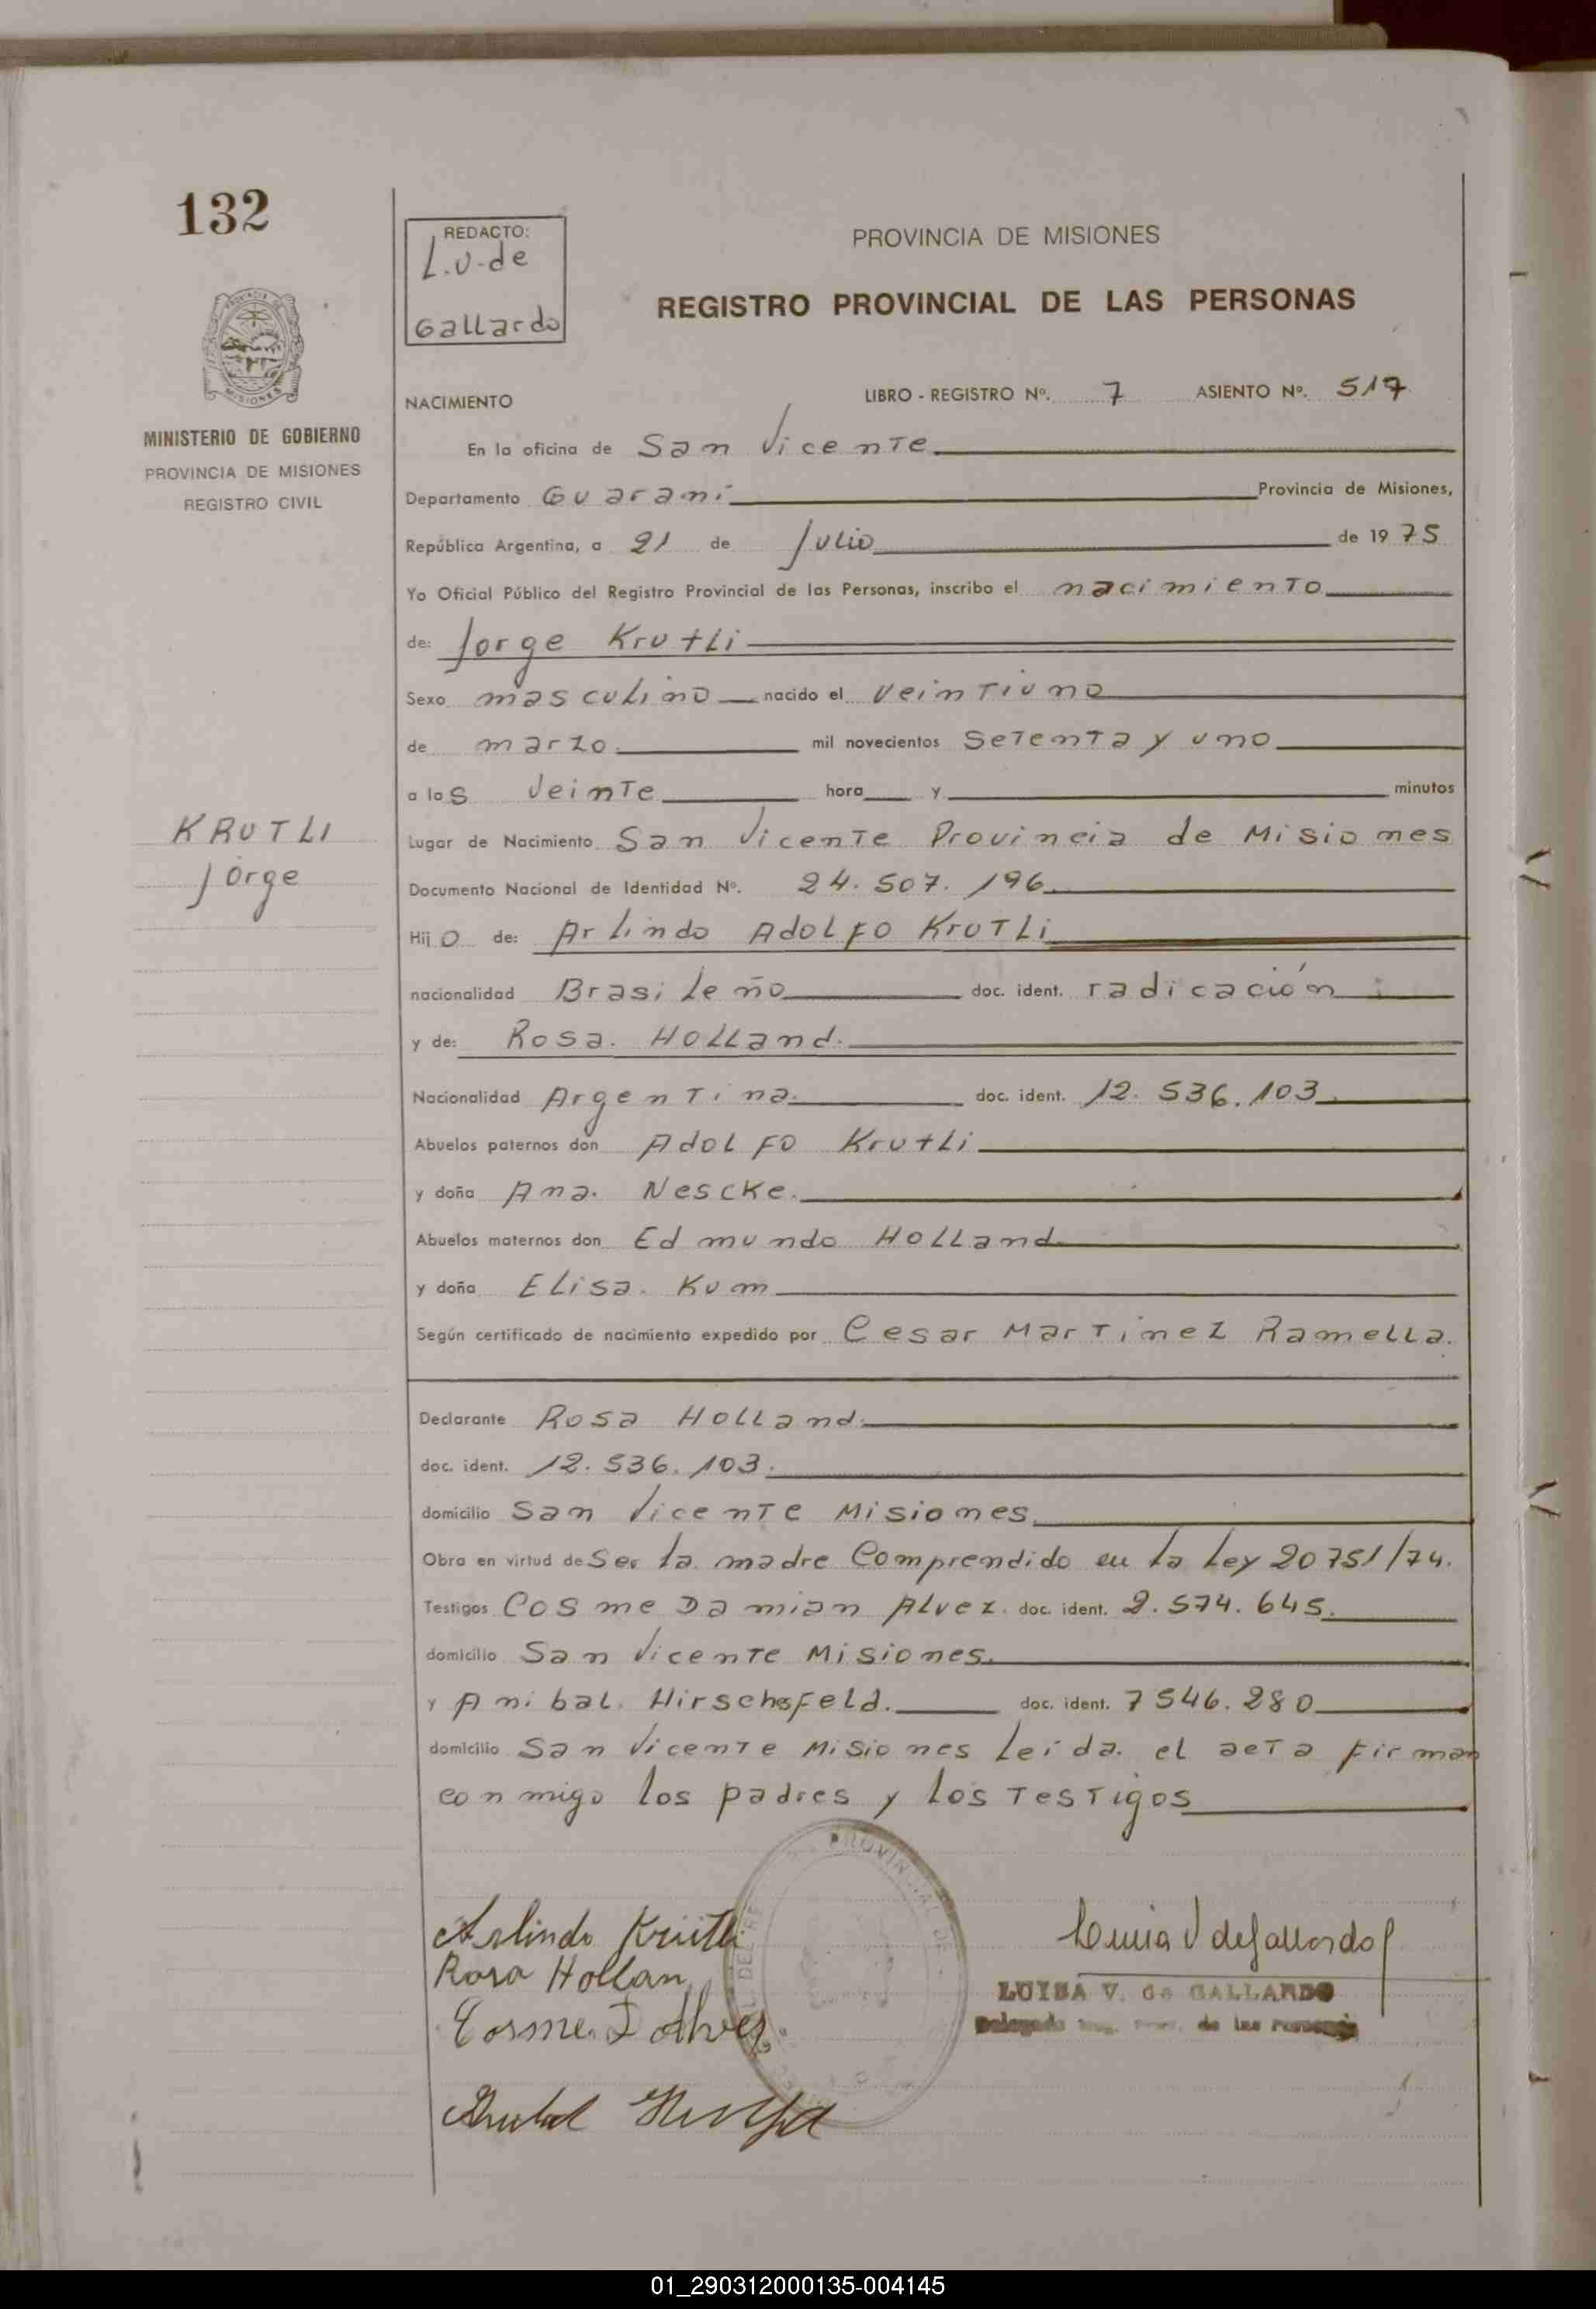 132
REDACTO:
L.V. de
Gallardo
PROVINCIA DE MISIONES
REGISTRO PROVINCIAL DE LAS PERSONAS
MINISTERIO DE GOBIERNO
PROVINCIA DE MISIONES
REGISTRO CIVIL
KRUTLI
Jorge
NACIMIENTO LIBRO - REGISTRO Nº. 7 ASIENTO Nº. 517
En la oficina de San Vicente
Departamento Guaraní Provincia de Misiones,
República Argentina, a 21 de Julio de 1975
Yo Oficial Público del Registro Provincial de las Personas, inscribo el nacimiento
de: Jorge Krutli
Sexo masculino nacido el veintiuno
de marzo mil novecientos setenta y uno
a las veinte hora y minutos
Lugar de Nacimiento San Vicente Provincia de Misiones
Documento Nacional de Identidad Nº. 24.507.196
Hijo de: Arlindo Adolfo Krutli
nacionalidad Brasileño doc. ident. radicación
y de: Rosa. Holland.
Nacionalidad Argentina. doc. ident. 12.536.103
Abuelos paternos don Adolfo Krutli
y doña Ana. Nescke.
Abuelos maternos don Edmundo Holland
y doña Elisa. Kum
Según certificado de nacimiento expedido por Cesar Martinez Ramella.
Declarante Rosa Holland.
doc. ident. 12.536.103.
domicilio San Vicente Misiones.
Obra en virtud de Ser la madre Comprendido en la Ley 20751/74.
Testigos Cosme Damian Alvez. doc. ident. 2.574.645.
domicilio San Vicente Misiones.
y Anibal. Hirschsfeld. doc. ident. 7546.280
domicilio San Vicente Misiones Leída. el acta firman
conmigo los padres y los testigos
Arlindo Krütli
Rosa Hollan
Cosme D Alvez
LUISA V. de GALLARDO
Delegado de las Personas
01_290312000135-004145